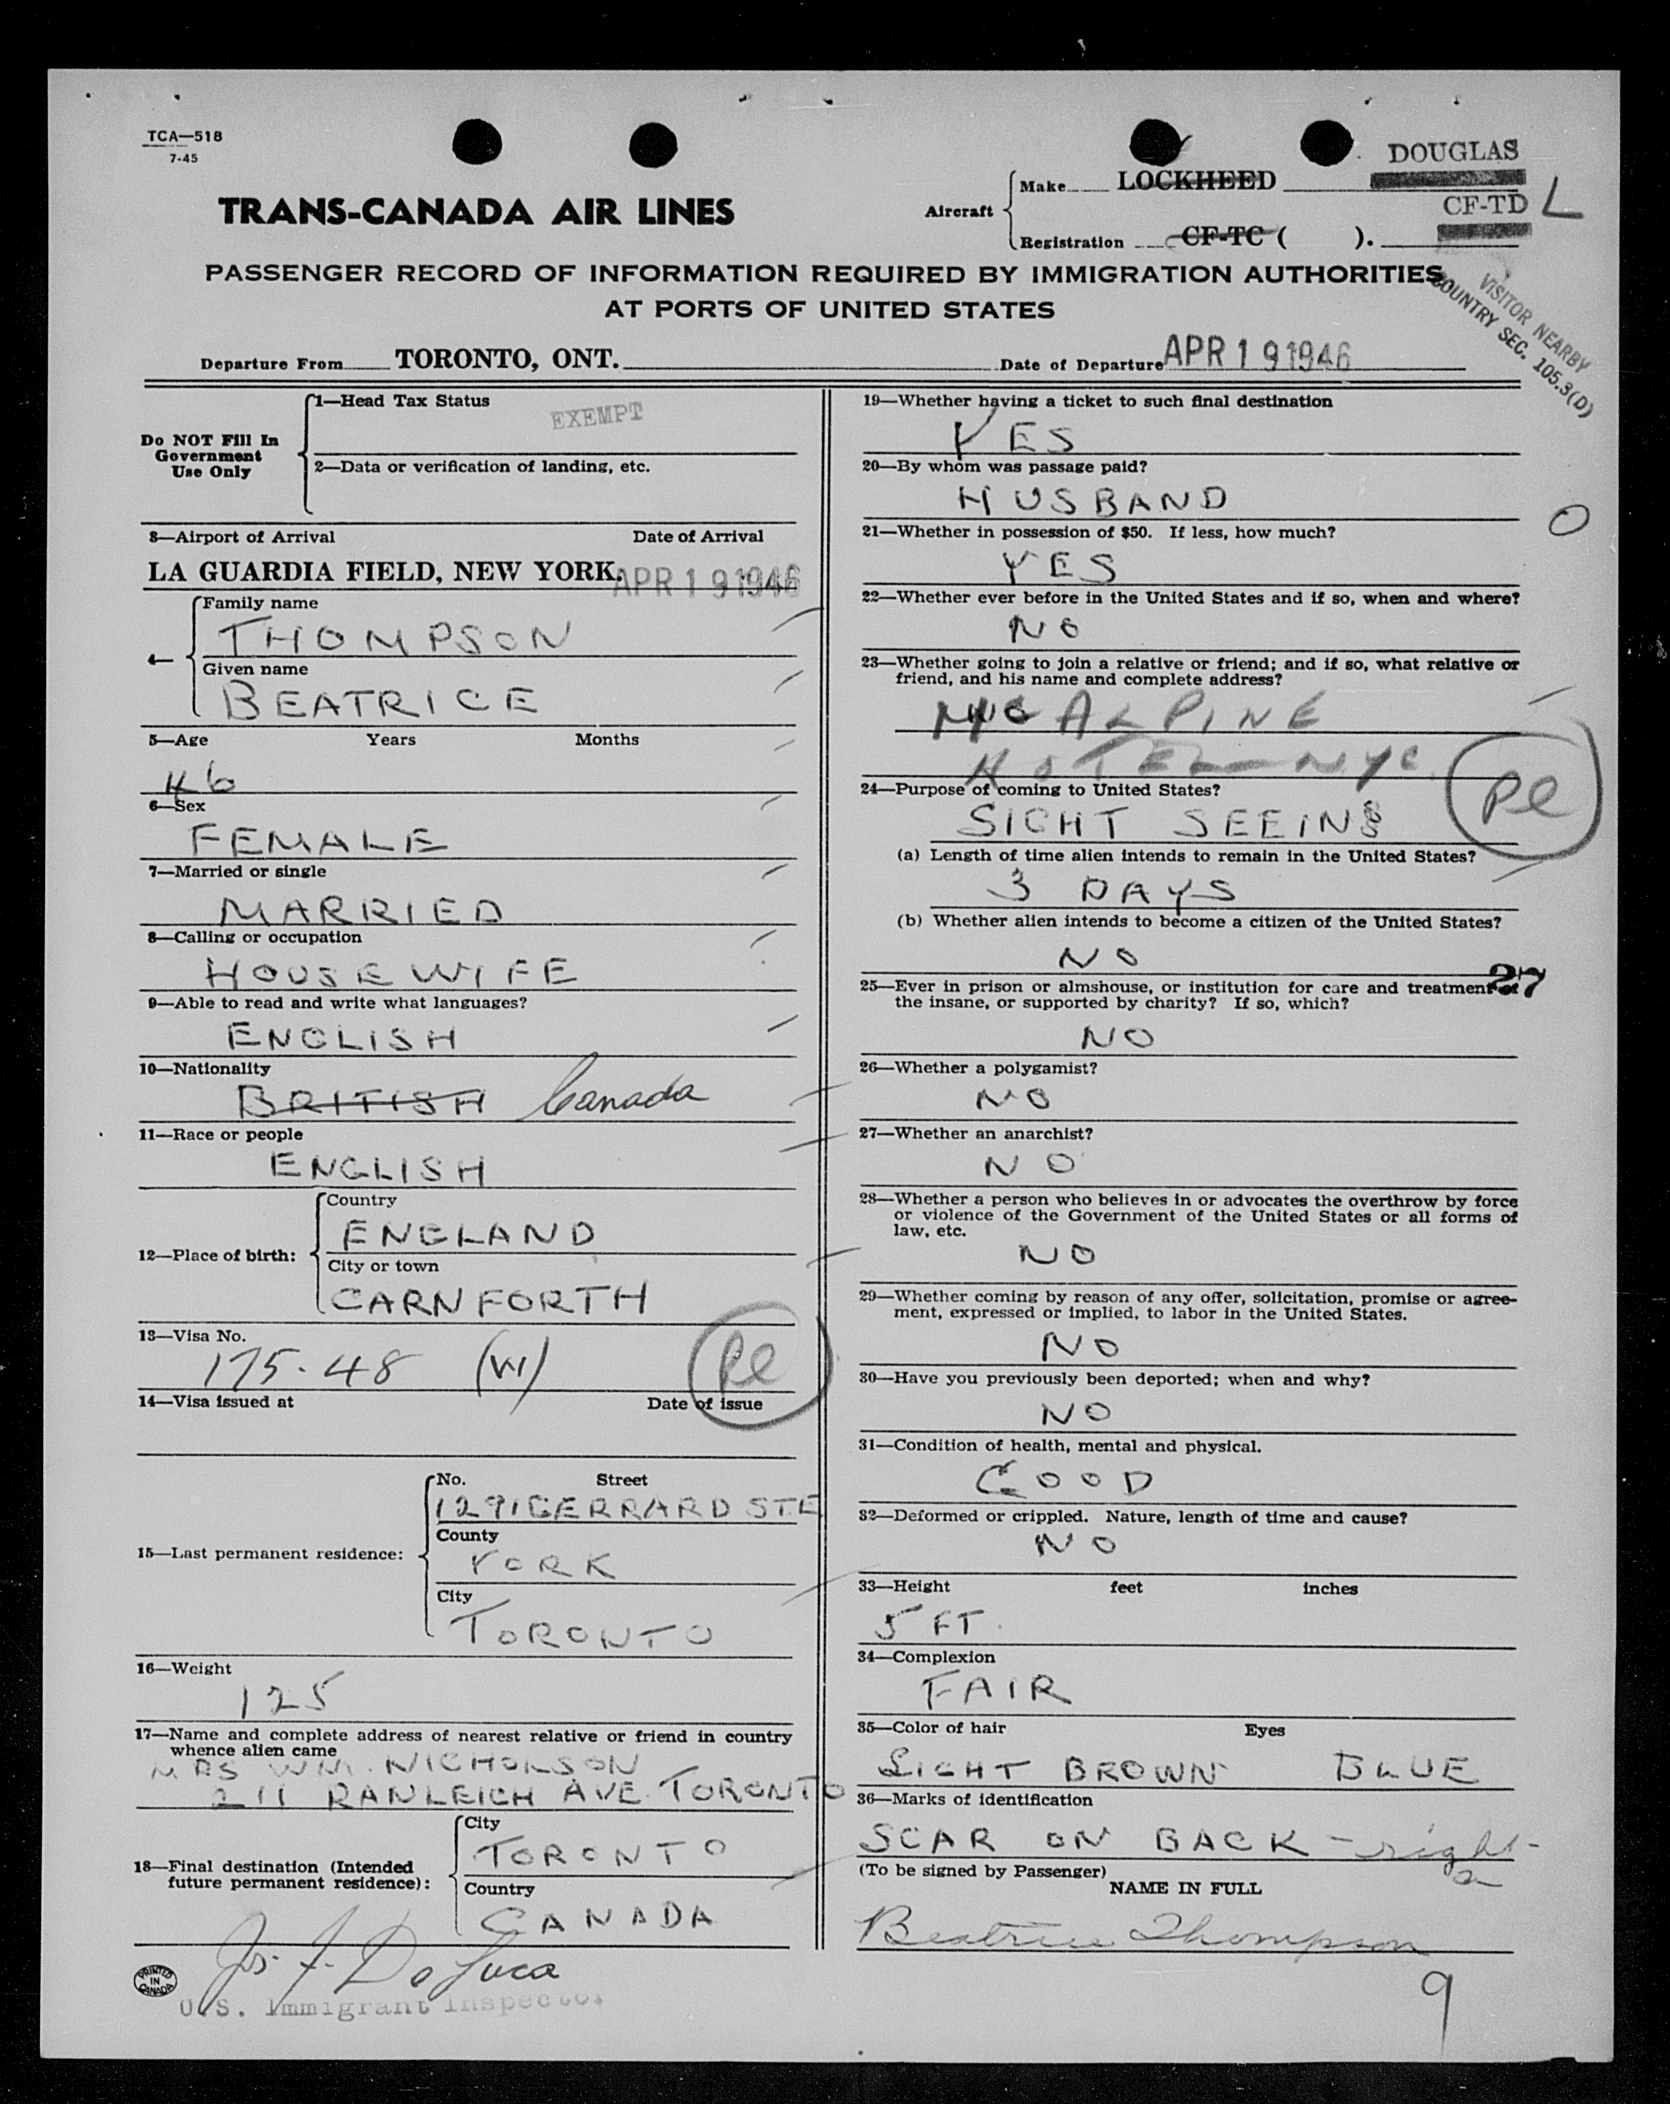 TCA—518
7-45
DOUGLAS
Aircraft
Make LOCKHEED
CF-TD L
Registration CF-TC ( ).
TRANS-CANADA AIR LINES
PASSENGER RECORD OF INFORMATION REQUIRED BY IMMIGRATION AUTHORITIES
AT PORTS OF UNITED STATES
VISITOR NEARBY
COUNTRY SEC. 105.3(D)
Departure From TORONTO, ONT. Date of Departure APR 19 1946
Do NOT Fill In
Government
Use Only
1—Head Tax Status
EXEMPT
2—Data or verification of landing, etc.
3—Airport of Arrival Date of Arrival
LA GUARDIA FIELD, NEW YORK. APR 19 1946
4—
Family name
THOMPSON
Given name
BEATRICE
5—Age Years Months
46
6—Sex
FEMALE
7—Married or single
MARRIED
8—Calling or occupation
HOUSEWIFE
9—Able to read and write what languages?
ENGLISH
10—Nationality
BRITISH Canada
11—Race or people
ENGLISH
12—Place of birth:
Country
ENGLAND
City or town
CARNFORTH
13—Visa No.
175-48 (W)
14—Visa issued at Date of issue
15—Last permanent residence:
No. Street
1291 GERRARD ST E
County
YORK
City
TORONTO
16—Weight
125
17—Name and complete address of nearest relative or friend in country
whence alien came
MRS WM. NICHOLSON
211 RANLEIGH AVE. TORONTO
18—Final destination (Intended
future permanent residence):
City
TORONTO
Country
CANADA
Jos. F. De Luca
U.S. Immigrant Inspector
PRINTED
IN
CANADA
19—Whether having a ticket to such final destination
YES
20—By whom was passage paid?
HUSBAND
21—Whether in possession of $50. If less, how much?
YES
O
22—Whether ever before in the United States and if so, when and where?
NO
23—Whether going to join a relative or friend; and if so, what relative or
friend, and his name and complete address?
ALPINE
HOTEL — NYC.
24—Purpose of coming to United States?
SIGHT SEEING
(a) Length of time alien intends to remain in the United States?
3 DAYS
(b) Whether alien intends to become a citizen of the United States?
NO
27
25—Ever in prison or almshouse, or institution for care and treatment of
the insane, or supported by charity? If so, which?
NO
26—Whether a polygamist?
NO
27—Whether an anarchist?
NO
28—Whether a person who believes in or advocates the overthrow by force
or violence of the Government of the United States or all forms of
law, etc.
NO
29—Whether coming by reason of any offer, solicitation, promise or agree-
ment, expressed or implied, to labor in the United States.
NO
30—Have you previously been deported; when and why?
NO
31—Condition of health, mental and physical.
GOOD
32—Deformed or crippled. Nature, length of time and cause?
NO
33—Height feet inches
5 FT.
34—Complexion
FAIR
35—Color of hair Eyes
LIGHT BROWN BLUE
36—Marks of identification
SCAR ON BACK - right -
(To be signed by Passenger)
NAME IN FULL
Beatrice Thompson
9